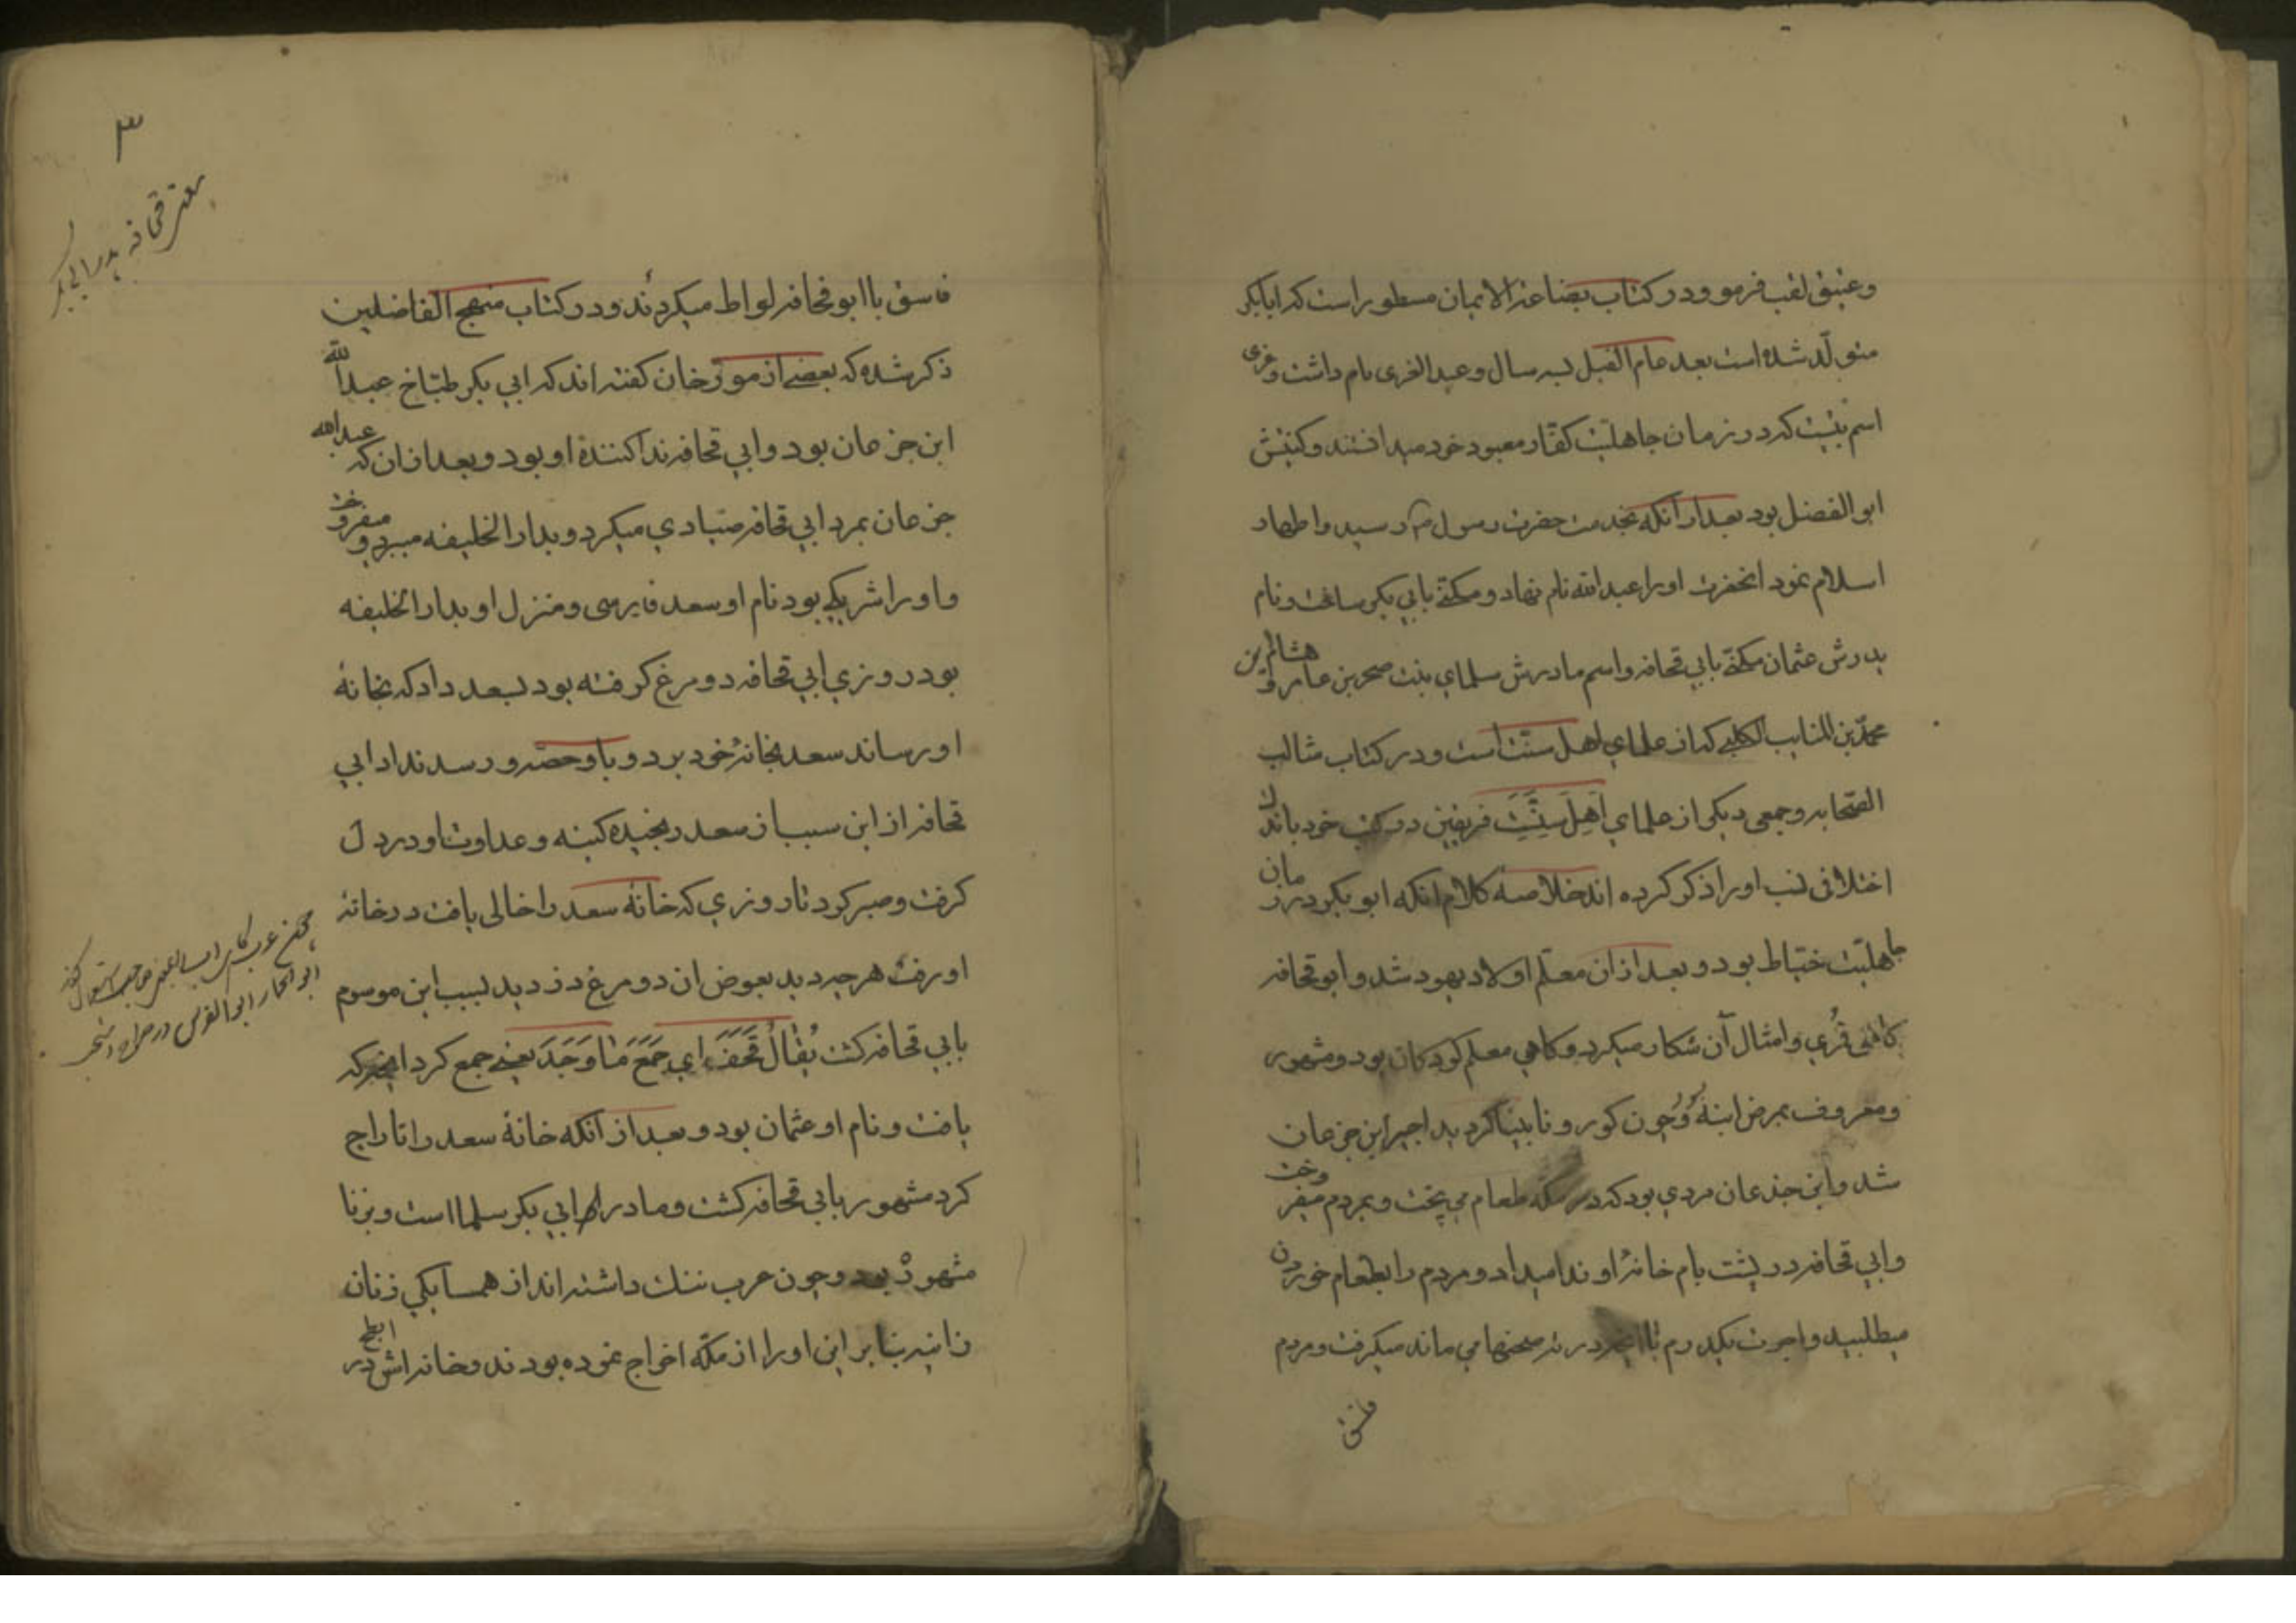 وعتیق لقب فرمود و در کتاب بضاعة الایمان مسطور است که ابابکر
متولّد شده است بعد عام الفیل بسه سال و عبد العزی نام داشت و عزی
اسم بتیست که در زمان جاهلیّت کفّار معبود خود میدانستند و کنیتش
ابو الفضل بود بعد از آنکه بخدمت حضرت رسول رسید و اظهار
اسلام نمود انحضرت او را عبد الله نام نهاد و مکنّی بابی بکر ساخت و نام
پدرش عثمان مکنّی بابی قحافه و اسم مادرش سلمای بنت صخر بن عامر و هشام بن
محمّد بن السایب الکلبی که از علمای اهل سنّت است و در کتاب مثالب
الصّحابه و جمعی دیگر از علمای اَهِل سِنَّت فریقین در کتب خود باندک
اختلافی نسب او را ذکر کرده اند خلاصه کلام انکه ابو بکر در زمان
جاهلیّت خیّاط بود و بعد از ان معلّم اولاد یهود شد و ابو قحافه
کاهی قُمری و امثال آن شکار میکرد و کاهی معلم کودکان بود و مشهور
و معروف بمرض ابنهٔ و چون کور و نابینا گردید اجیر ابن جزعان
شد و ابن جذعان مردی بود که در مکه طعام می پخت و بمردم میفروخت
و ابی قحافه در پشت بام خانهٔ او ندا میداد و مردم را بطعام خوردن
میطلبید و اجرت یکدرم با انچه در ته صحنها می ماند میکرفت و مردم
فاسق
۳
فاسق با ابو قحافه لواط میکردند و در کتاب منهج الفاضلین
ذکر شده که بعضی از مورّخان کفته اند که ابی بکر طبّاخ عبد الله
ابن جزعان بود و ابی قحافه ندا کنندهٔ او بود و بعد از ان که عبد الله
جزعان بمرد ابی قحافه صیّادی میکرد و بدار الخلیفه میبرد و میفروخت
و او را شریکی بود نام او سعد فارسی و منزل او بدار الخلیفه
بود روزی ابی قحافه دو مرغ کرفته بود بسعد داد که بخانهٔ
او رساند سعد بخانهٔ خود برد و باو حصّه و رسد نداد ابی
قحافه از این سبب از سعد رنجیده کینه و عداوت او در دل
کرفت و صبر کرد تا روزی که خانهٔ سعد را خالی یافت در خانهٔ
او رفت هر چه دید بعوض ان دو مرغ دزدید بسبب این موسوم
بابی قحافه کشت یُقٰالُ قَحَفَ ای جَمَعَ مٰا وَجَدَ یعنی جمع کرد انچه که
یافت و نام او عثمان بود و بعد از آنکه خانهٔ سعد را تاراج
کرد مشهور بابی قحافه کشت و مادر ابی بکر سلما است و بزنا
مشهور بود و چون عرب ننک داشته اند از همسایکی زنان
زانیه بنا بر این او را از مکّه اخراج نموده بودند و خانه اش در ابطح